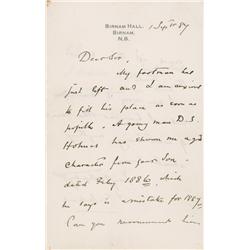 BIRNAM HALL,
BIRNAM,
N.B.
1 Sept 87
Dear Sir,
My footman has
just left and I am anxious
to fill his place as soon as
possible. A young man D. S.
Holmes has shown me a
character from your Son
dated Feby 1886 which
he says is a mistake for 1887.
Can you recommend him